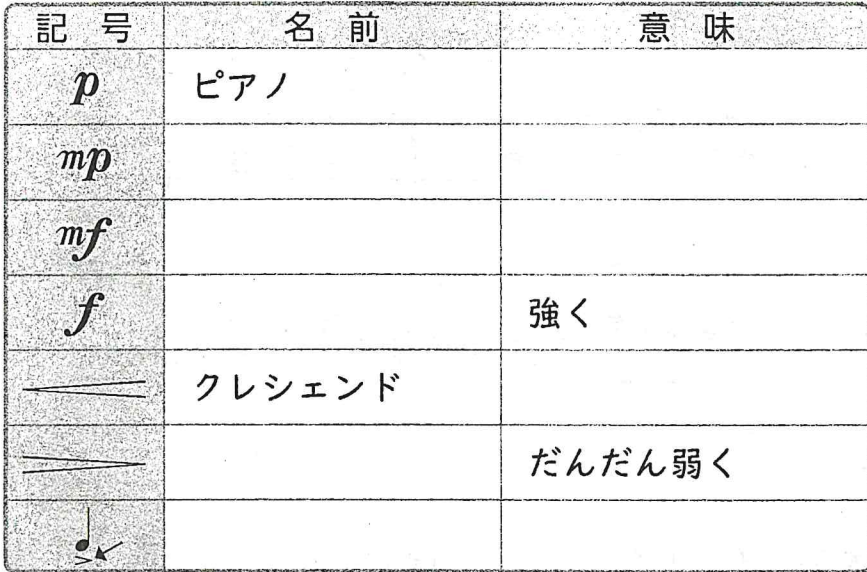 記号 名前 意味
p ピアノ
mp
mf
f 強く
クレシェンド
だんだん弱く